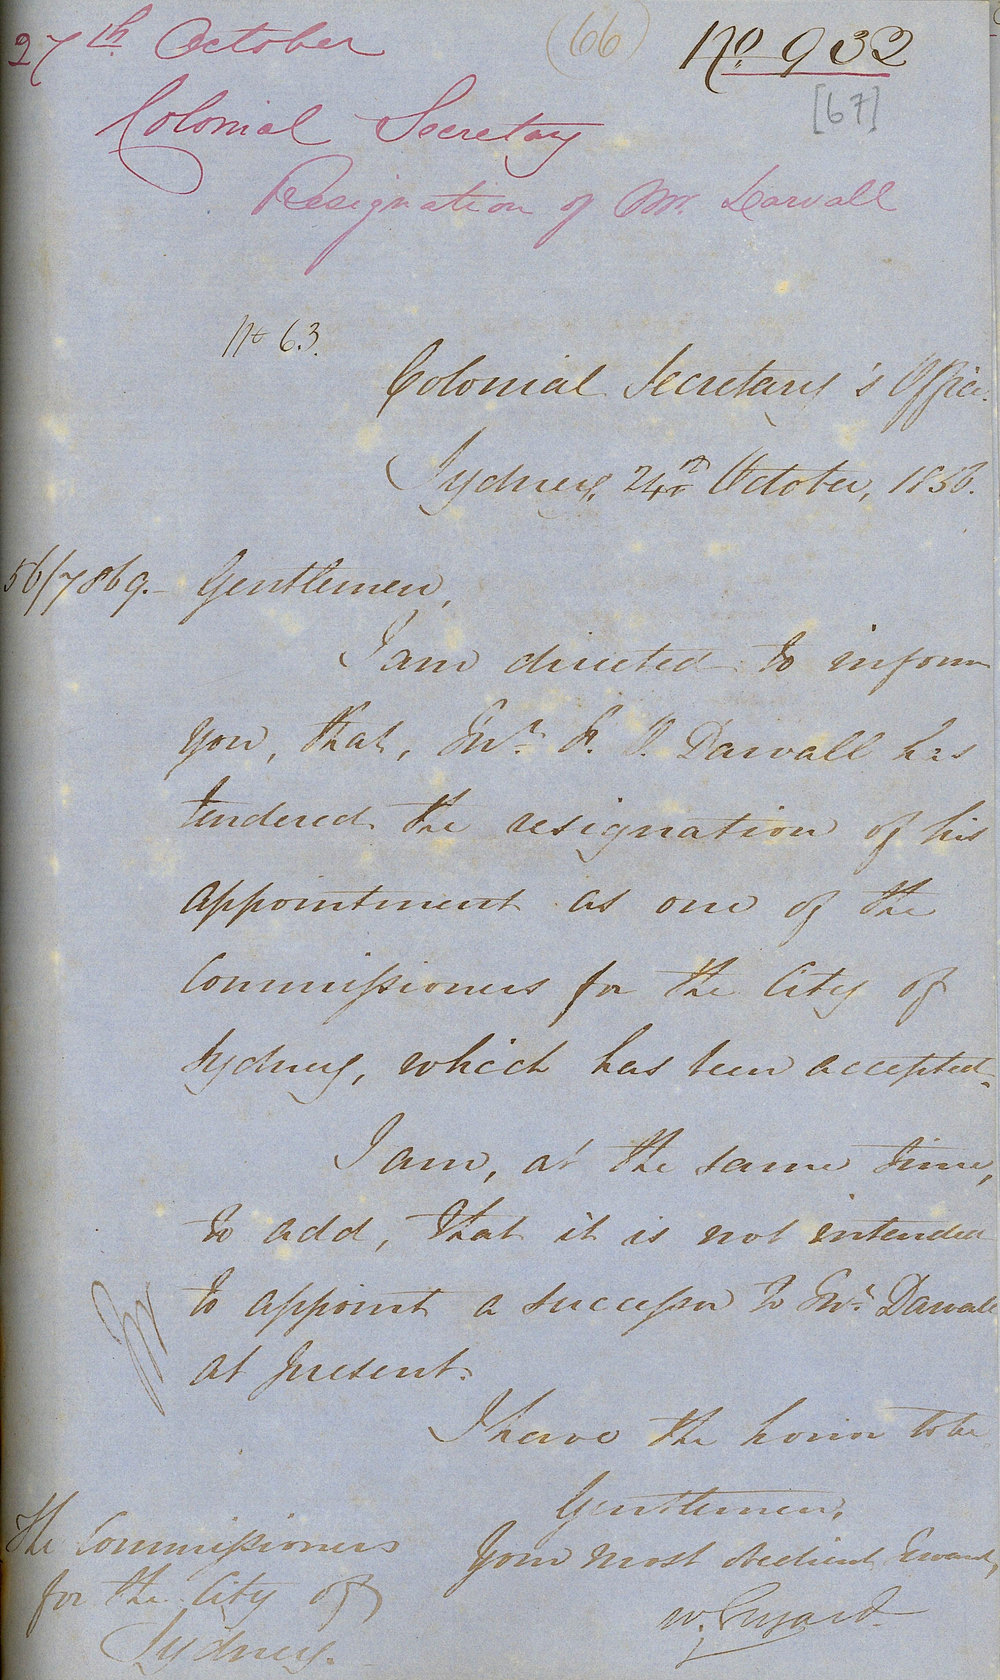 27th October
(66) No 932
[67]
Colonial Secretary
Resignation of Mr. Darvall
No 63.
Colonial Secretary's Office.
Sydney, 24th October, 1856.
56/7869. Gentlemen,
I am directed to inform
you, that, Mr. F. O. Darvall has
tendered the resignation of his
appointment as one of the
Commissioners for the City of
Sydney, which has been accepted.
I am, at the same time,
to add, that it is not intended
to appoint a successor to Mr. Darvall
at present.
I have the honor to be
Gentlemen,
Your most obedient Servant,
W. Elyard
The Commissioners
for the City of
Sydney.